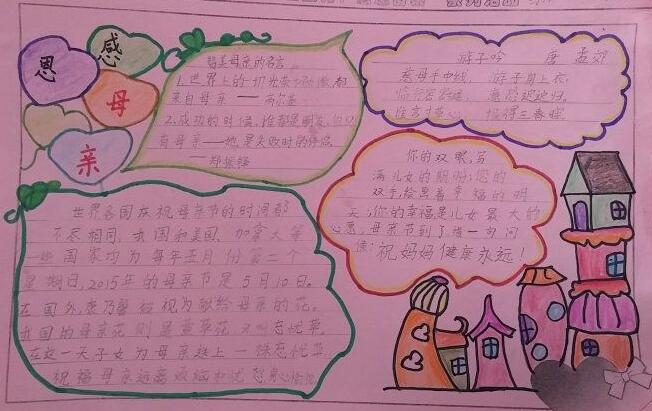 感
恩
母
亲
赞美母亲的名言。
1.世界上的一切光荣和骄傲,都
来自母亲——高尔基
2.成功的时候,谁都是朋友,但只
有母亲——她是失败时的伴侣
——郑振铎
游子吟 唐 孟郊
慈母手中线, 游子身上衣,
临行密密缝, 意恐迟迟归。
谁言寸草心, 报得三春晖
你的双眼,写
满儿女的期盼;您的
双手,绘出着幸福的明
天;你的幸福是儿女最大的
心愿,母亲节到了道一句问
候:祝妈妈健康永远!
世界各国庆祝母亲节的时间都
不尽相同,我国和美国、加拿大等
一些国家均为每年五月份第二个
星期日,2015年的母亲节是5月10日。
在国外,康乃馨被视为献给母亲的花。
我国的母亲花则是萱草花 又叫忘忧草。
在这一天子女为母亲送上一株忘忧草
祝福母亲远离烦恼和忧愁